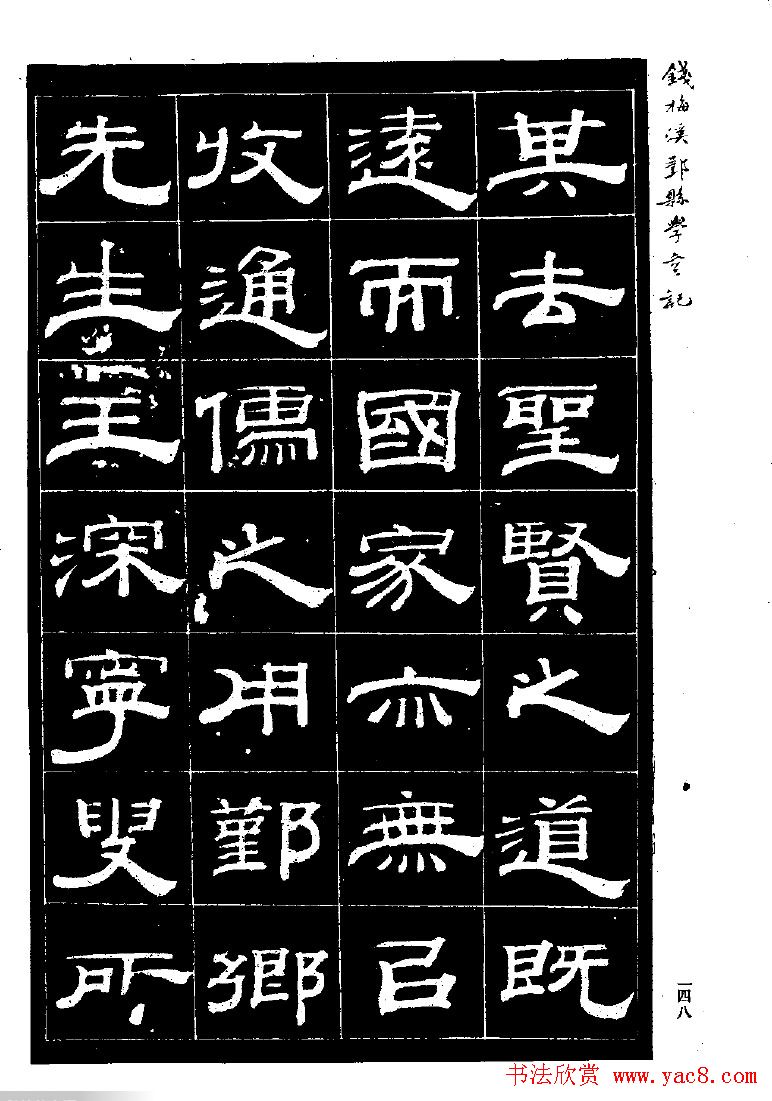 錢梅溪鄞縣學重記
其去聖賢之道既
遠而國家亦無㠯
收通儒之用鄞鄉
先生王深寧叟所
一四八
书法欣赏 www.yac8.com